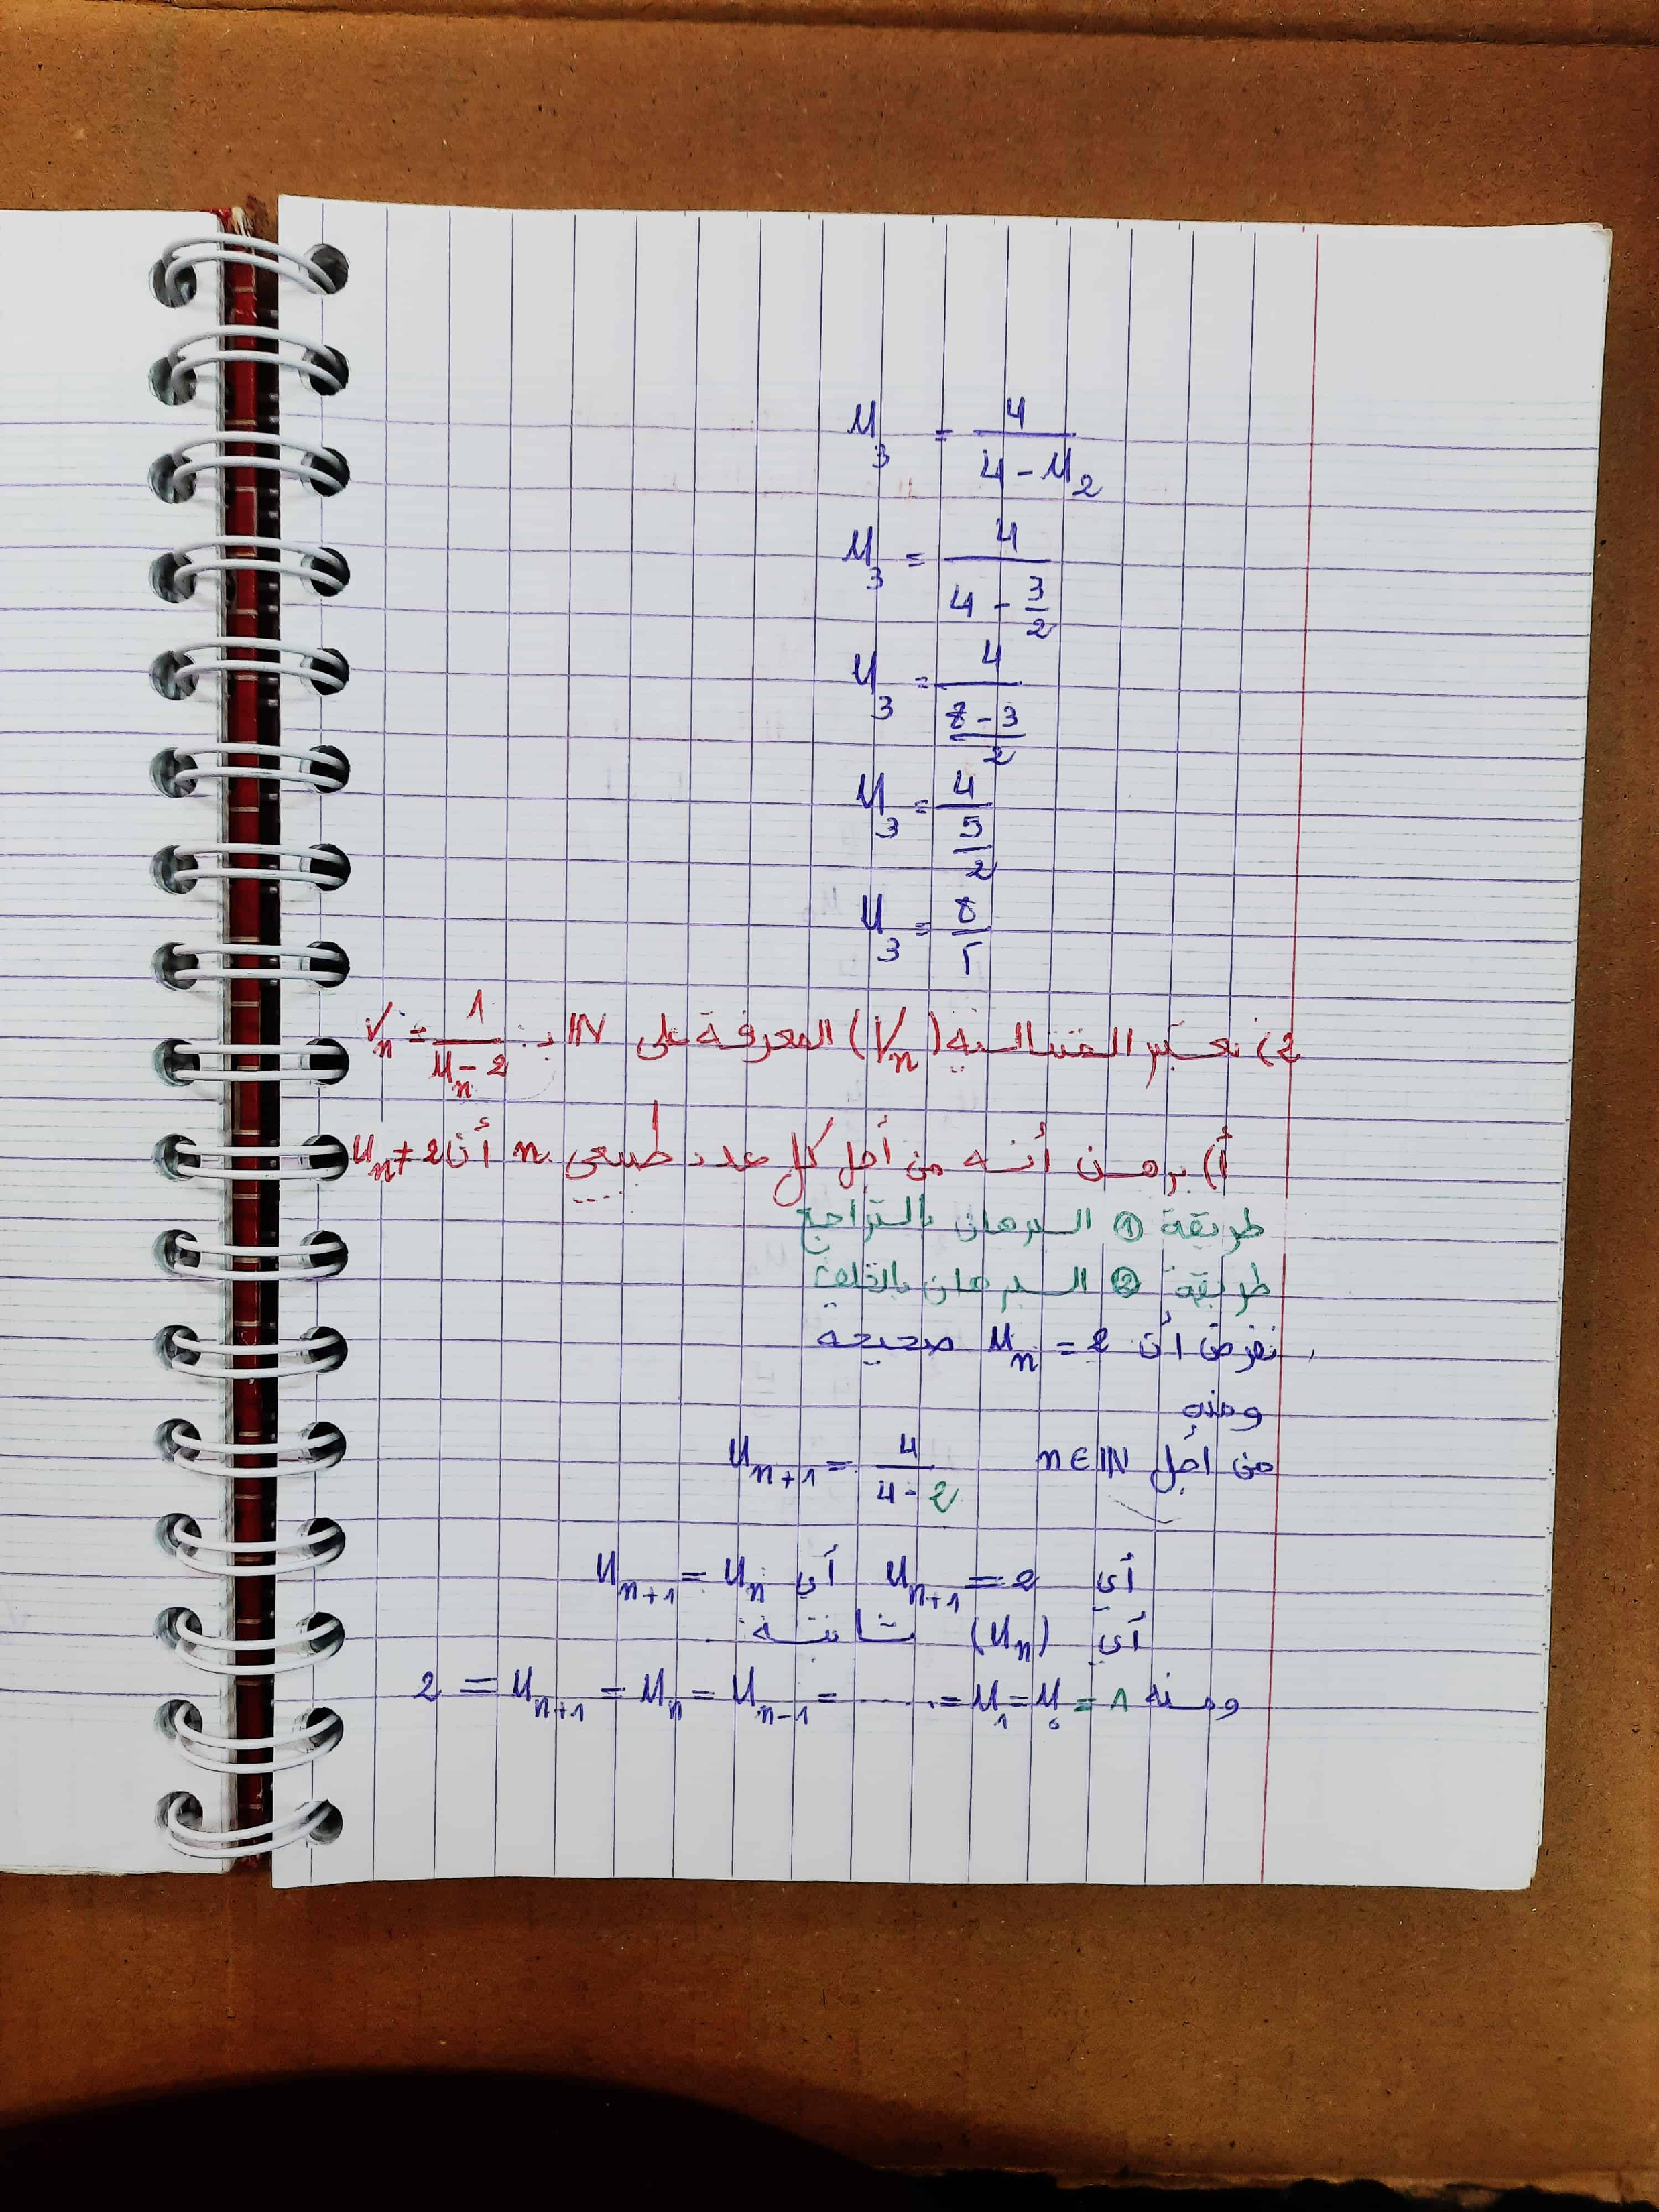 U₃ = 4 / (4 - U₂)
U₃ = 4 / (4 - 3/2)
U₃ = 4 / ((8 - 3)/2)
U₃ = 4 / (5/2)
U₃ = 8/5
2) نعتبر المتتالية (Vₙ) المعرفة على IN بـ: Vₙ = 1 / (Uₙ - 2)
أ) برهن أنه من أجل كل عدد طبيعي n أن Uₙ ≠ 2
طريقة ① البرهان بالتراجع
طريقة ② البرهان بالخلف
نفرض أن Uₙ = 2 صحيحة
ومنه
من أجل n ∈ IN Uₙ₊₁ = 4 / (4 - 2)
أي Uₙ₊₁ = 2 أي Uₙ₊₁ = Uₙ
أي (Uₙ) ثابتة
ومنه 2 = Uₙ₊₁ = Uₙ = Uₙ₋₁ = ...... = U₁ = U₀ = 1